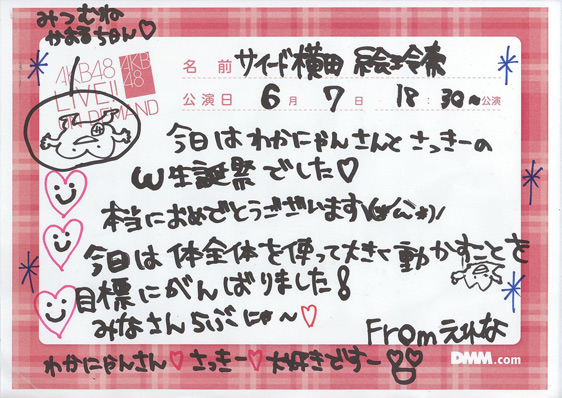 みつむね
かおるちゃん♡
AKB48
LIVE!!
ON DEMAND
AKB
48
名前 サイード横田 絵玲奈
公演日 6月7日 18:30~公演
今日はわかにゃんさんとさっきーの
W生誕祭でした♡
本当におめでとうございます
今日は体全体を使って大きく動かすことを
目標にがんばりました!
みなさんらぶにゃ~♡
Fromえれな
DMM.com
わかにゃんさん♡さっきー♡大好きですー♡♡